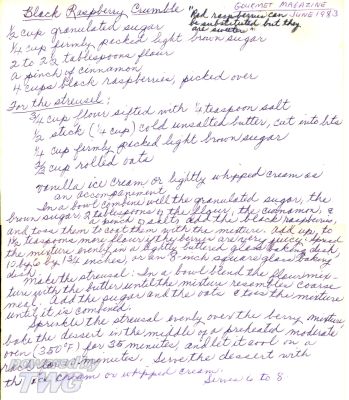 Black Raspberry Crumble
GOURMET MAGAZINE
JUNE 1983
"Red raspberries can
be substituted but they
are sweeter"
½ cup granulated sugar
¼ cup firmly packed light brown sugar
2 to 2 ½ tablespoons flour
a pinch of cinnamon
4 cups black raspberries, picked over
For the streusel:
¾ cup flour sifted with ¼ teaspoon salt
½ stick (¼ cup) cold unsalted butter, cut into bits
¼ cup firmly packed light brown sugar
⅓ cup rolled oats
vanilla ice cream or lightly whipped cream as
an accompaniment
In a bowl combine well the granulated sugar, the
brown sugar, 2 tablespoons of the flour, the cinnamon, &
a pinch of salt, add the black raspberries,
and toss them to coat them with the mixture. Add up, to
1½ teaspoons more flour if the berries are very juicy. Spread
the mixture evenly in a lightly buttered glass baking dish,
10 by 6 by 1¾ inches, or an 8-inch square glass baking
dish.
Make the streusel: In a bowl blend the flour mix-
ture with the butter until the mixture resembles coarse
meal. Add the sugar and the oats & toss the mixture
until it is combined.
Sprinkle the streusel evenly over the berry mixture,
bake the dessert in the middle of a preheated moderate
oven (350°F) for 35 minutes, and let it cool on a
rack for minutes. Serve the dessert with
the ice cream or whipped cream.
Serves 6 to 8
powered by
TWG